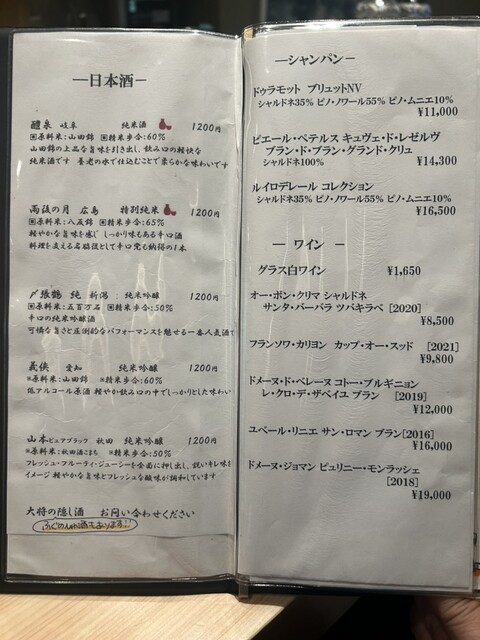 —日本酒—
醴泉 岐阜 純米酒 1200円
※原料米:山田錦 ※精米歩合:60%
山田錦の上品な旨味を引き出し、飲み口の軽快な
純米酒です 養老の水で仕込むことで柔らかな味わいです
雨後の月 広島 特別純米 1200円
※原料米:八反錦 ※精米歩合:65%
軽やかな旨味を感じ しっかり味もある辛口酒
料理を支える名脇役として辛口党も納得の1本
〆張鶴 純 新潟 純米吟醸 1200円
※原料米:五百万石 ※精米歩合:50%
辛口の純米吟醸酒
可憐な旨さと圧倒的なパフォーマンスを魅せる一番人気酒で
義侠 愛知 純米吟醸 1200円
※原料米:山田錦 ※精米歩合:60%
低アルコール原酒 軽やか飲み口の中でしっかりとした味わい
山本ピュアブラック 秋田 純米吟醸 1200円
※原料米:秋田酒こまち ※精米歩合:50%
フレッシュ・フルーティ・ジューシーを全面に押し出し、鋭いキレ味を
イメージ 軽やかな旨味とフレッシュな酸味が調和しています
大将の隠し酒 お問い合わせください
ふぐのひれ酒もあります!!
—シャンパン—
ドゥラモット ブリュットNV
シャルドネ35% ピノ・ノワール55% ピノ・ムニエ10%
¥11,000
ピエール・ペテルス キュヴェ・ド・レゼルヴ
ブラン・ド・ブラン・グランド・クリュ
シャルドネ100% ¥14,300
ルイロデレール コレクション
シャルドネ35% ピノ・ノワール55% ピノ・ムニエ10%
¥16,500
— ワイン —
グラス白ワイン ¥1,650
オー・ボン・クリマ シャルドネ
サンタ・バーバラ ツバキラベ [2020]
¥8,500
フランソワ・カリヨン カップ・オー・スッド [2021]
¥9,800
ドメーヌ・ド・ベレーヌ コトー・ブルギニョン
レ・クロ・デ・ザペイユ ブラン [2019]
¥12,000
ユベール・リニエ サン・ロマン ブラン[2016]
¥16,000
ドメーヌ・ジョマン ピュリニー・モンラッシェ
[2018]
¥19,000